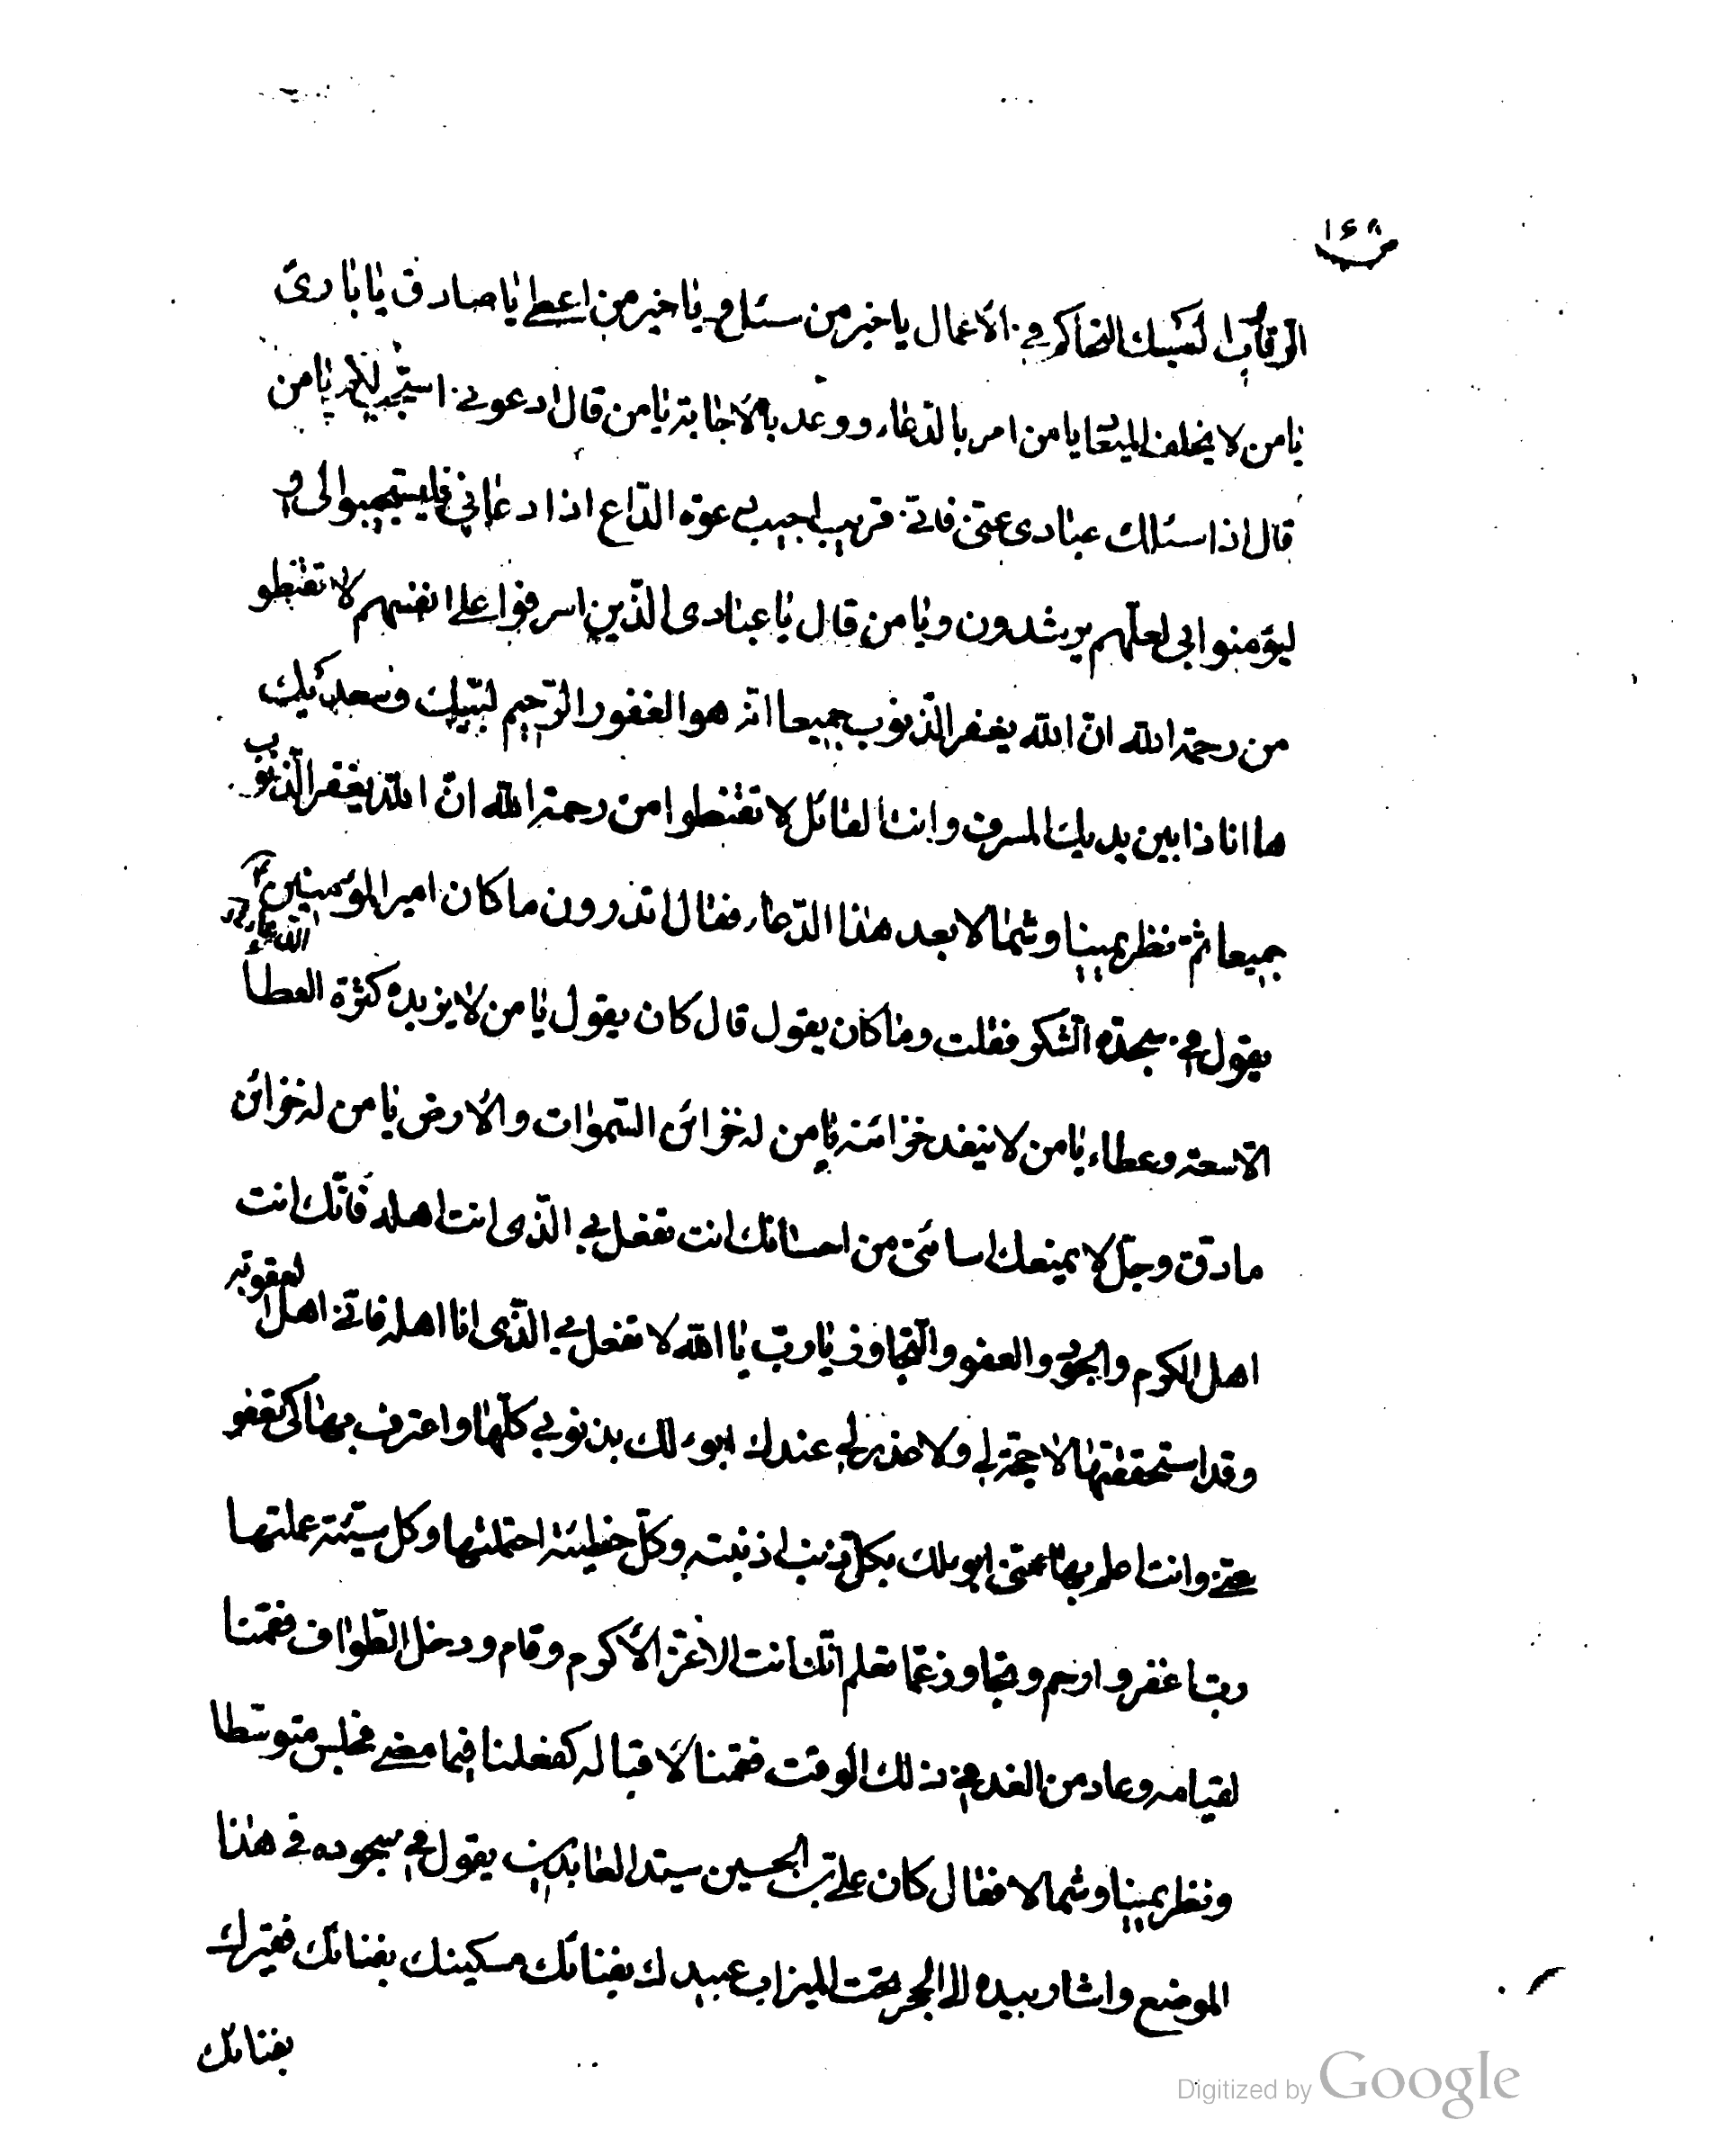 ١٤٨
الرقاب اليك التحاكم في الأعمال يا خير من سئل ويا خير من اعطى يا صادق يا بارئ
يا من لا يخلف الميعاد يا من امر بالدّعاء ووعد بالاجابة يا من قال ادعوني استجب لكم يا من
قال اذا سئلك عبادى عنّى فانّى قريب اجيب دعوة الدّاع اذا دعانى فليستجيبوا لى و
ليؤمنوا بى لعلّهم يرشدون ويا من قال يا عبادى الّذين اسرفوا على انفسهم لا تقنطو
من رحمة الله انّ الله يغفر الذّنوب جميعا انّه هو الغفور الرّحيم لبّيك وسعديك
ها انا ذا بين يديك المسرف وانت القائل لا تقنطوا من رحمة الله انّ الله يغفر الذّنوب
جميعا ثمّ نظر يمينا وشمالا بعد هذا الدّعاء فقال اتدرون ما كان امير المؤمنين
يقول فى سجدة الشّكر فقلت وما كان يقول قال كان يقول يا من لا يزيده كثرة العطا
الّا سعة وعطاء يا من لا ينفد خزائنه يا من له خزائن السّموات والأرض يا من له خزائن
ما دقّ وجلّ لا يمنعك اسائتى من احسانك انت تفعل بى الّذى انت اهله فانّك انت
اهل الكرم والجود والعفو والتّجاوز يا ربّ يا الله لا تفعل بى الّذى انا اهله فانّى اهل العقوبة
وقد استحققتها لا حجّة لى ولا عذر لى عندك ابوء لك بذنوبى كلّها واعترف بها كى تعفو
عنّى وانت اعلم بها منّى ابوء لك بكلّ ذنب اذنبته وكلّ خطيئة احتملتها وكل سيّئة عملتها
ربّ اغفر وارحم وتجاوز عمّا تعلم انّك انت الاعزّ الأكرم وقام ودخل الطّواف فقمنا
لقيامه وعاد من الغد فى ذلك الوقت فقمنا لاقباله كفعلنا فيما مضى فجلس متوسّطا
ونظر يمينا وشمالا فقال كان علىّ بن الحسين سيّد العابدين يقول فى سجوده فى هذا
الموضع واشار بيده الى الحجر تحت الميزاب عبيدك بفنائك مسكينك بفنائك فقيرك
بفنائك
Digitized by Google